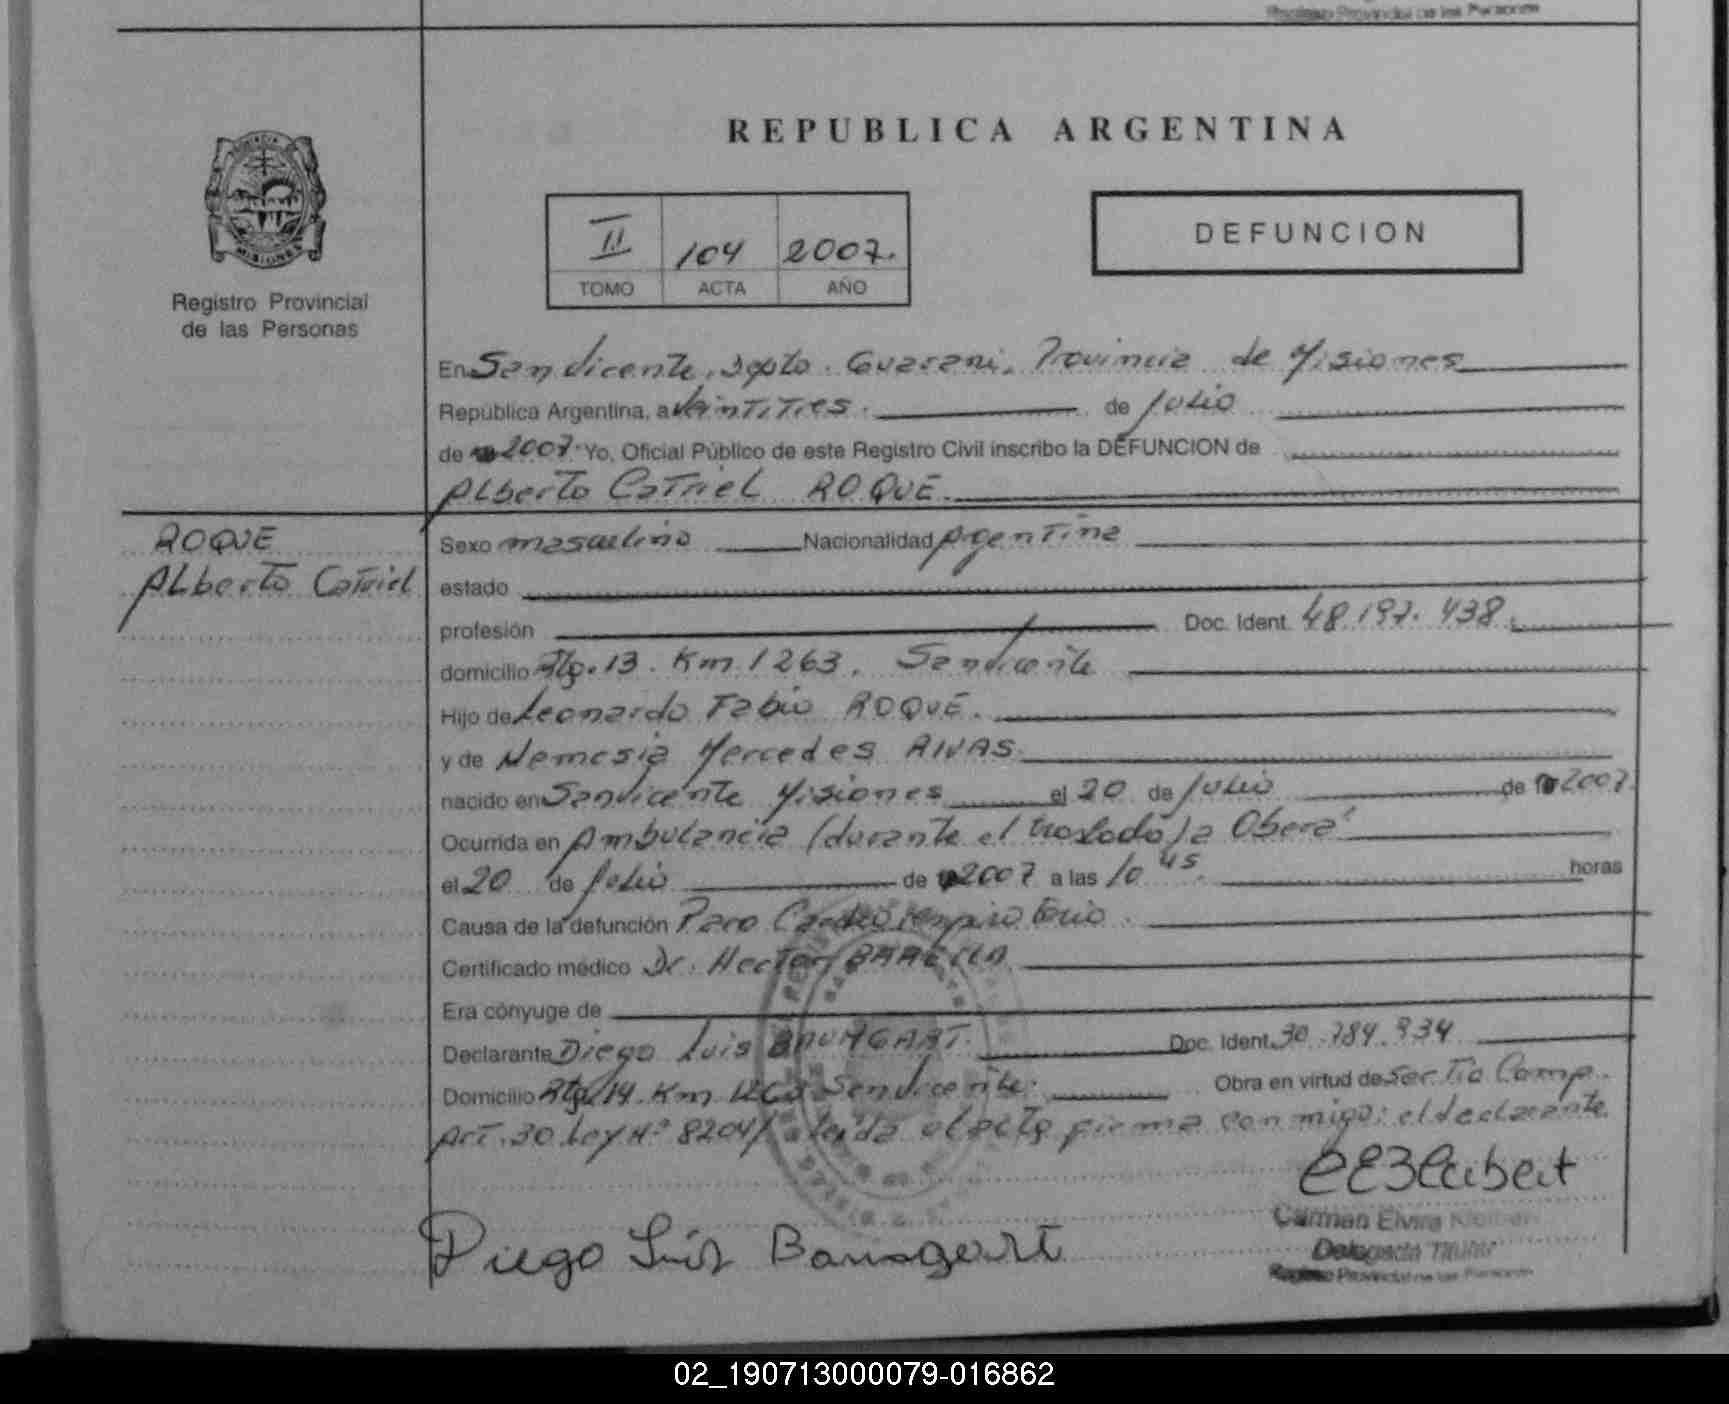 Registro Provincial de las Personas
REPUBLICA ARGENTINA
MISIONES
Registro Provincial
de las Personas
II 104 2007.
TOMO ACTA AÑO
DEFUNCION
En San Vicente, Dpto. Guarani, Provincia de Misiones
República Argentina, a Veintitres. de Julio
de 2007. Yo, Oficial Público de este Registro Civil inscribo la DEFUNCION de
Alberto Catriel ROQUE.
ROQUE
Alberto Catriel
Sexo masculino Nacionalidad Argentina
estado
profesión Doc. Ident. 48.197.438.
domicilio Rta. 13. Km. 1263. San Vicente
Hijo de Leonardo Fabio ROQUE.
y de Nemesia Mercedes RIVAS.
nacido en San Vicente Misiones el 20 de Julio de 2007.
Ocurrida en Ambulancia (durante el traslado) a Oberá
el 20 de Julio de 2007 a las 10 45. horas
Causa de la defunción Paro Cardio respiratorio.
Certificado médico Dr. Hector
Era cónyuge de
Declarante Diego Luis BAUMGART. Doc. Ident. 30.784.934
Domicilio 14. Km. San Vicente. Obra en virtud de Ser Tio Comp.
Art. 30 Ley Nº 8204/ leida el acta firma conmigo: el declarante.
Carmen Elvira
Delegada Titular
Registro Provincial de las Personas
Diego Luis Baumgart
02_190713000079-016862